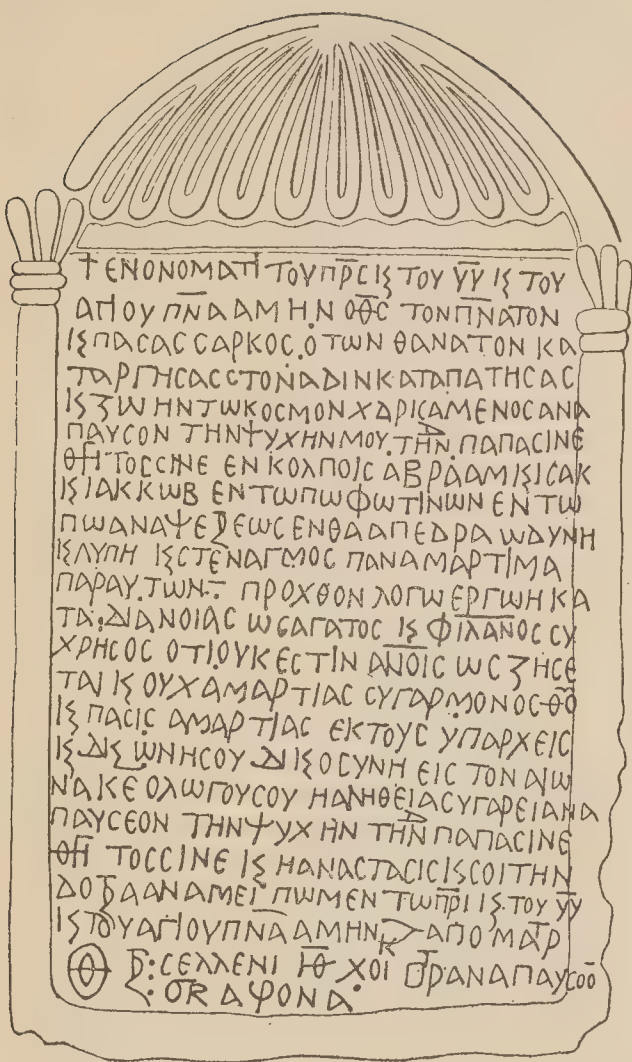 † ΕΝΟΝΟΜΑΤΙ ΤΟΥ Π̅Ρ̅Ϲ ΙϚ ΤΟΥ Υ̅Υ̅ ΙϚ ΤΟΥ
ΑΓΙΟΥ Π̅Ν̅Α ΑΜΗΝ Ο Θ̅Ϲ̅ ΤΟΝ Π̅Ν̅ΑΤΟΝ
ΙϚ ΠΑϹΑϹ ϹΑΡΚΟϹ. Ο ΤΩΝ ΘΑΝΑΤΟΝ ΚΑ
ΤΑΡΓΗϹΑϹ ϹΤΟΝ ΑΔΙΝ ΚΑΤΑΠΑΤΗϹΑϹ
ΙϚ ΖΩΗΝ ΤΩ ΚΟϹΜΟΝ ΧΑΡΙϹΑΜΕΝΟϹ ΑΝΑ
ΠΑΥϹΟΝ ΤΗΝ ΨΥΧΗΝ ΜΟΥ. ΤΗΝ. ΠΑΠΑϹΙΝΕ
ΤΟϹϹΙΝΕ ΕΝ ΚΟΛΠΟΙϹ ΑΒΡΑΑΜ ΙϚ ΙϹΑΚ
ΙϚ ΙΑΚΚΩΒ ΕΝ ΤΩΠΩ ΦΩΤΙΝΩΝ ΕΝ ΤΩ
ΠΩ ΑΝΑΨΕΞΕΩϹ ΕΝΘΑ ΑΠΕΔΡΑ ΩΔΥΝΗ
ΙϚ ΛΥΠΗ ΙϚ ϹΤΕΝΑΓΜΟϹ ΠΑΝ ΑΜΑΡΤΙΜΑ
ΠΑΡ ΑΥ.ΤΩΝ. ΠΡΟΧΘΟΝ ΛΟΓΩ ΕΡΓΩ Η ΚΑ
ΤΑ. ΔΙΑΝΟΙΑϹ ΩϹ ΑΓΑΤΟϹ ΙϚ ΦΙΛΑΝΟϹ ϹΥ
ΧΡΗϹΟϹ ΟΤΙ.ΟΥΚ ΕϹΤΙΝ Α̅Ν̅Ο̅ΙϹ ΩϹ ΖΗϹΕ
ΤΑΙ ΙϚ ΟΥΧ ΑΜΑΡΤΙΑϹ ϹΥ ΓΑΡ ΜΟΝΟϹ Θ̅Ο̅
ΙϚ ΠΑϹΙϹ ΑΜΑΡΤΙΑϹ ΕΚΤΟΥϹ ΥΠΑΡΧΕΙϹ
ΙϚ ΔΙϚΩΝΗϹΟΥ ΔΙϚΟϹΥΝΗ ΕΙϹ ΤΟΝ ΑΙΩ
ΝΑ ΙϚΕ Ο ΛΩΓΟΥϹ ΟΥ Η ΑΛΗΘΕΙΑ ϹΥ ΓΑΡ ΕΙ ΑΝΑ
ΠΑΥϹΕΟΝ ΤΗΝ ΨΥΧΗΝ ΤΗΝ ΠΑΠΑϹΙΝΕ
ΤΟϹϹΙΝΕ ΙϚ Η ΑΝΑϹΤΑϹΙϹ ΙϚ ϹΟΙ ΤΗΝ
ΔΟΞΑ ΑΝΑΜΕΙΠΩΜΕΝ ΤΩ Π̅Ρ̅Ι ΙϚ. ΤΟΥ Υ̅Υ̅
ΙϚ ΤΟΥ ΑΓΙΟΥ Π̅Ν̅Α ΑΜΗΝ ΑΠΟ ΜΑΡ
ϹΕΛΛΕΝΙ ΧΟΙ ΑΝΑΠΑΥϹΟΟ
ΑΨΟΝΑ